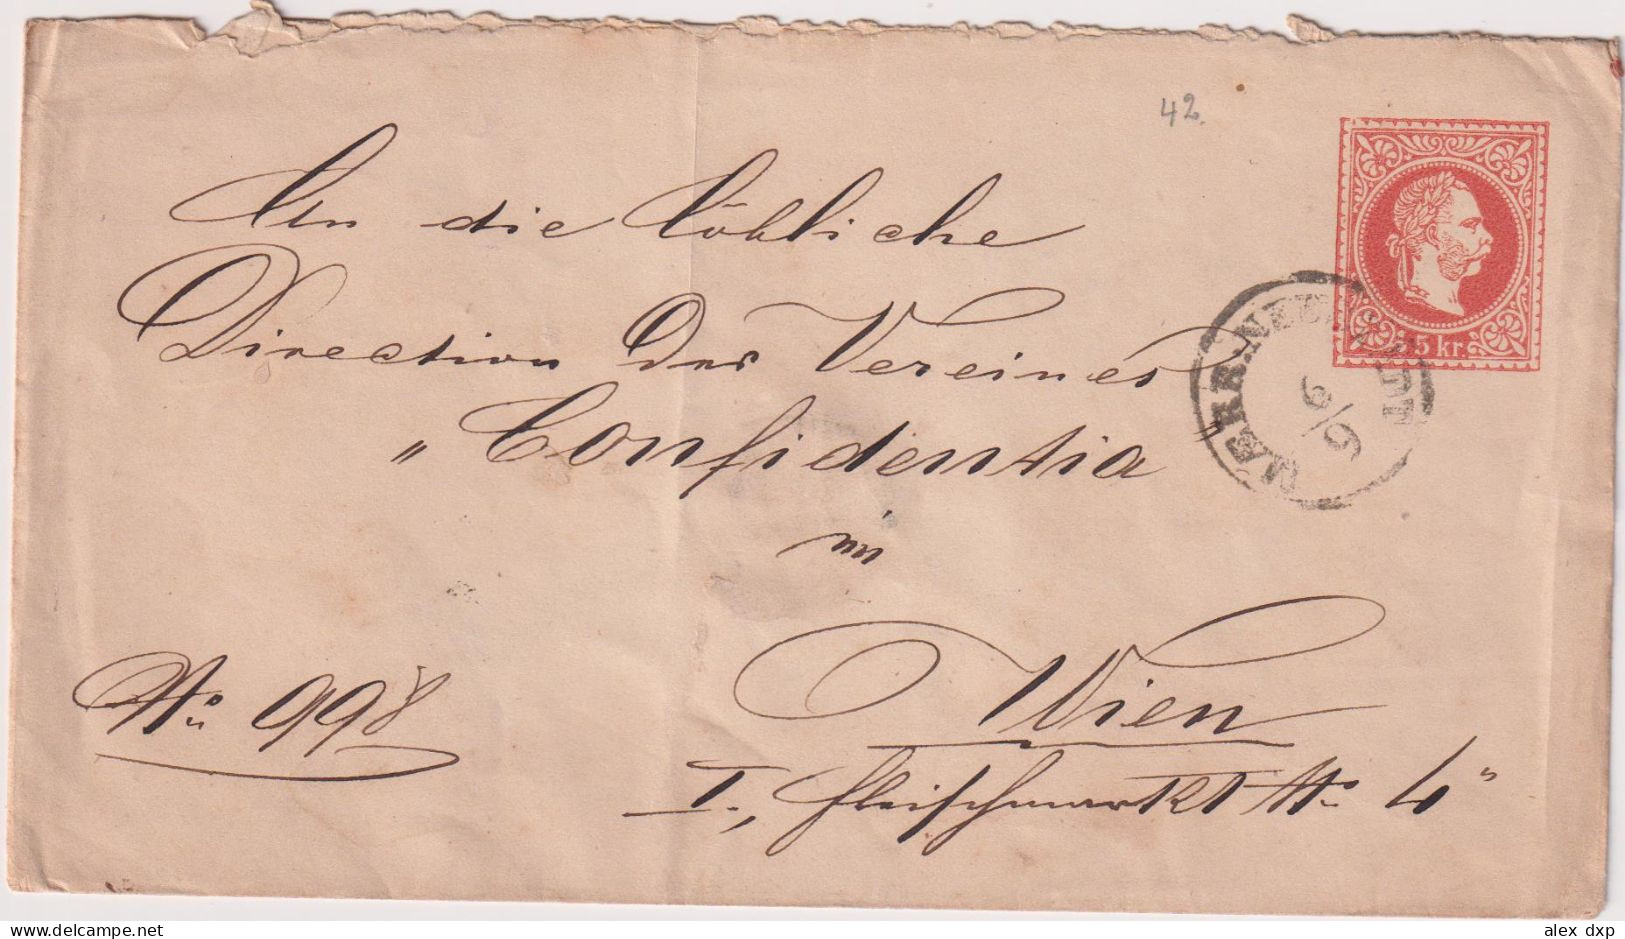 42.
An die löbliche
Direction Des Vereines
„Confidentia"
in
Wien
I., Fleischmarkt No 4"
No 998
5 kr.
MÆHR.NEUSTADT
6/9
delcampe.net
alex dxp